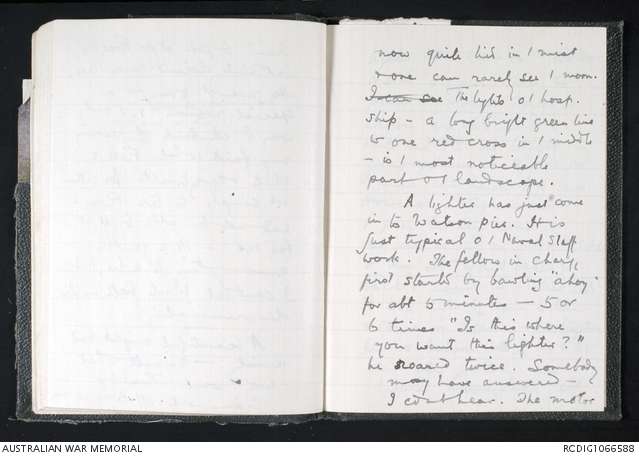 now quite hid in / mist
& one can rarely see / moon.
I can see The lights o / hosp.
ship – a long bright green line
w one red cross in / middle
– is / most noticeable
part o / landscape.
A lighter has just come
in to Watson pier. It is
just typical o / Naval Staff
work. The fellow in charge
first starts by bawling "ahoy"
for abt 5 minutes – 5 or
6 times "Is this where
you want this lighter?"
he roared twice. Somebody
may have answered –
I cdnt hear. The motor
AUSTRALIAN WAR MEMORIAL
RCDIG1066588